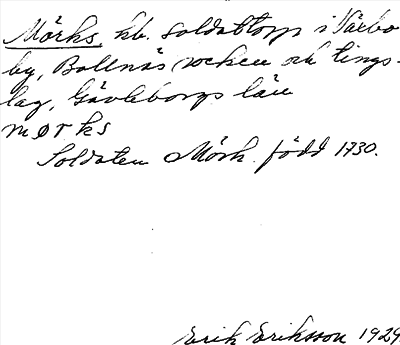 Mörks, kb. soldattorp i Närbo
by, Bollnäs socken och tings-
lag, Gävleborgs län
mørks
Soldaten Mörk. född 1730.
Erik Eriksson 1929